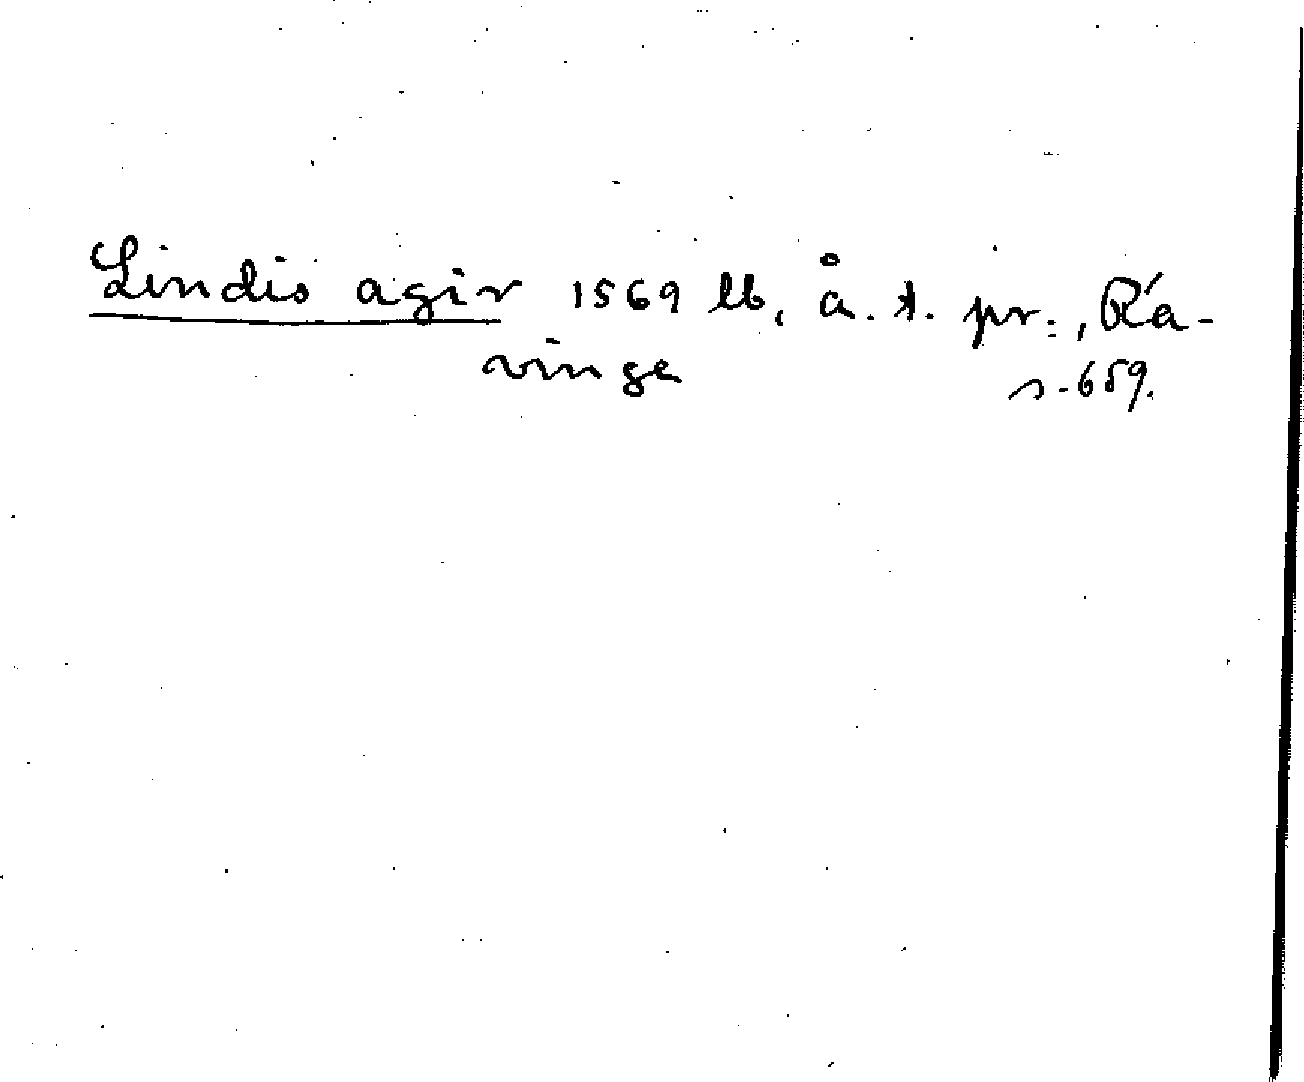 Lindis agir 1569 lb, å. t. pr:, Rä-
vinge s. 659.